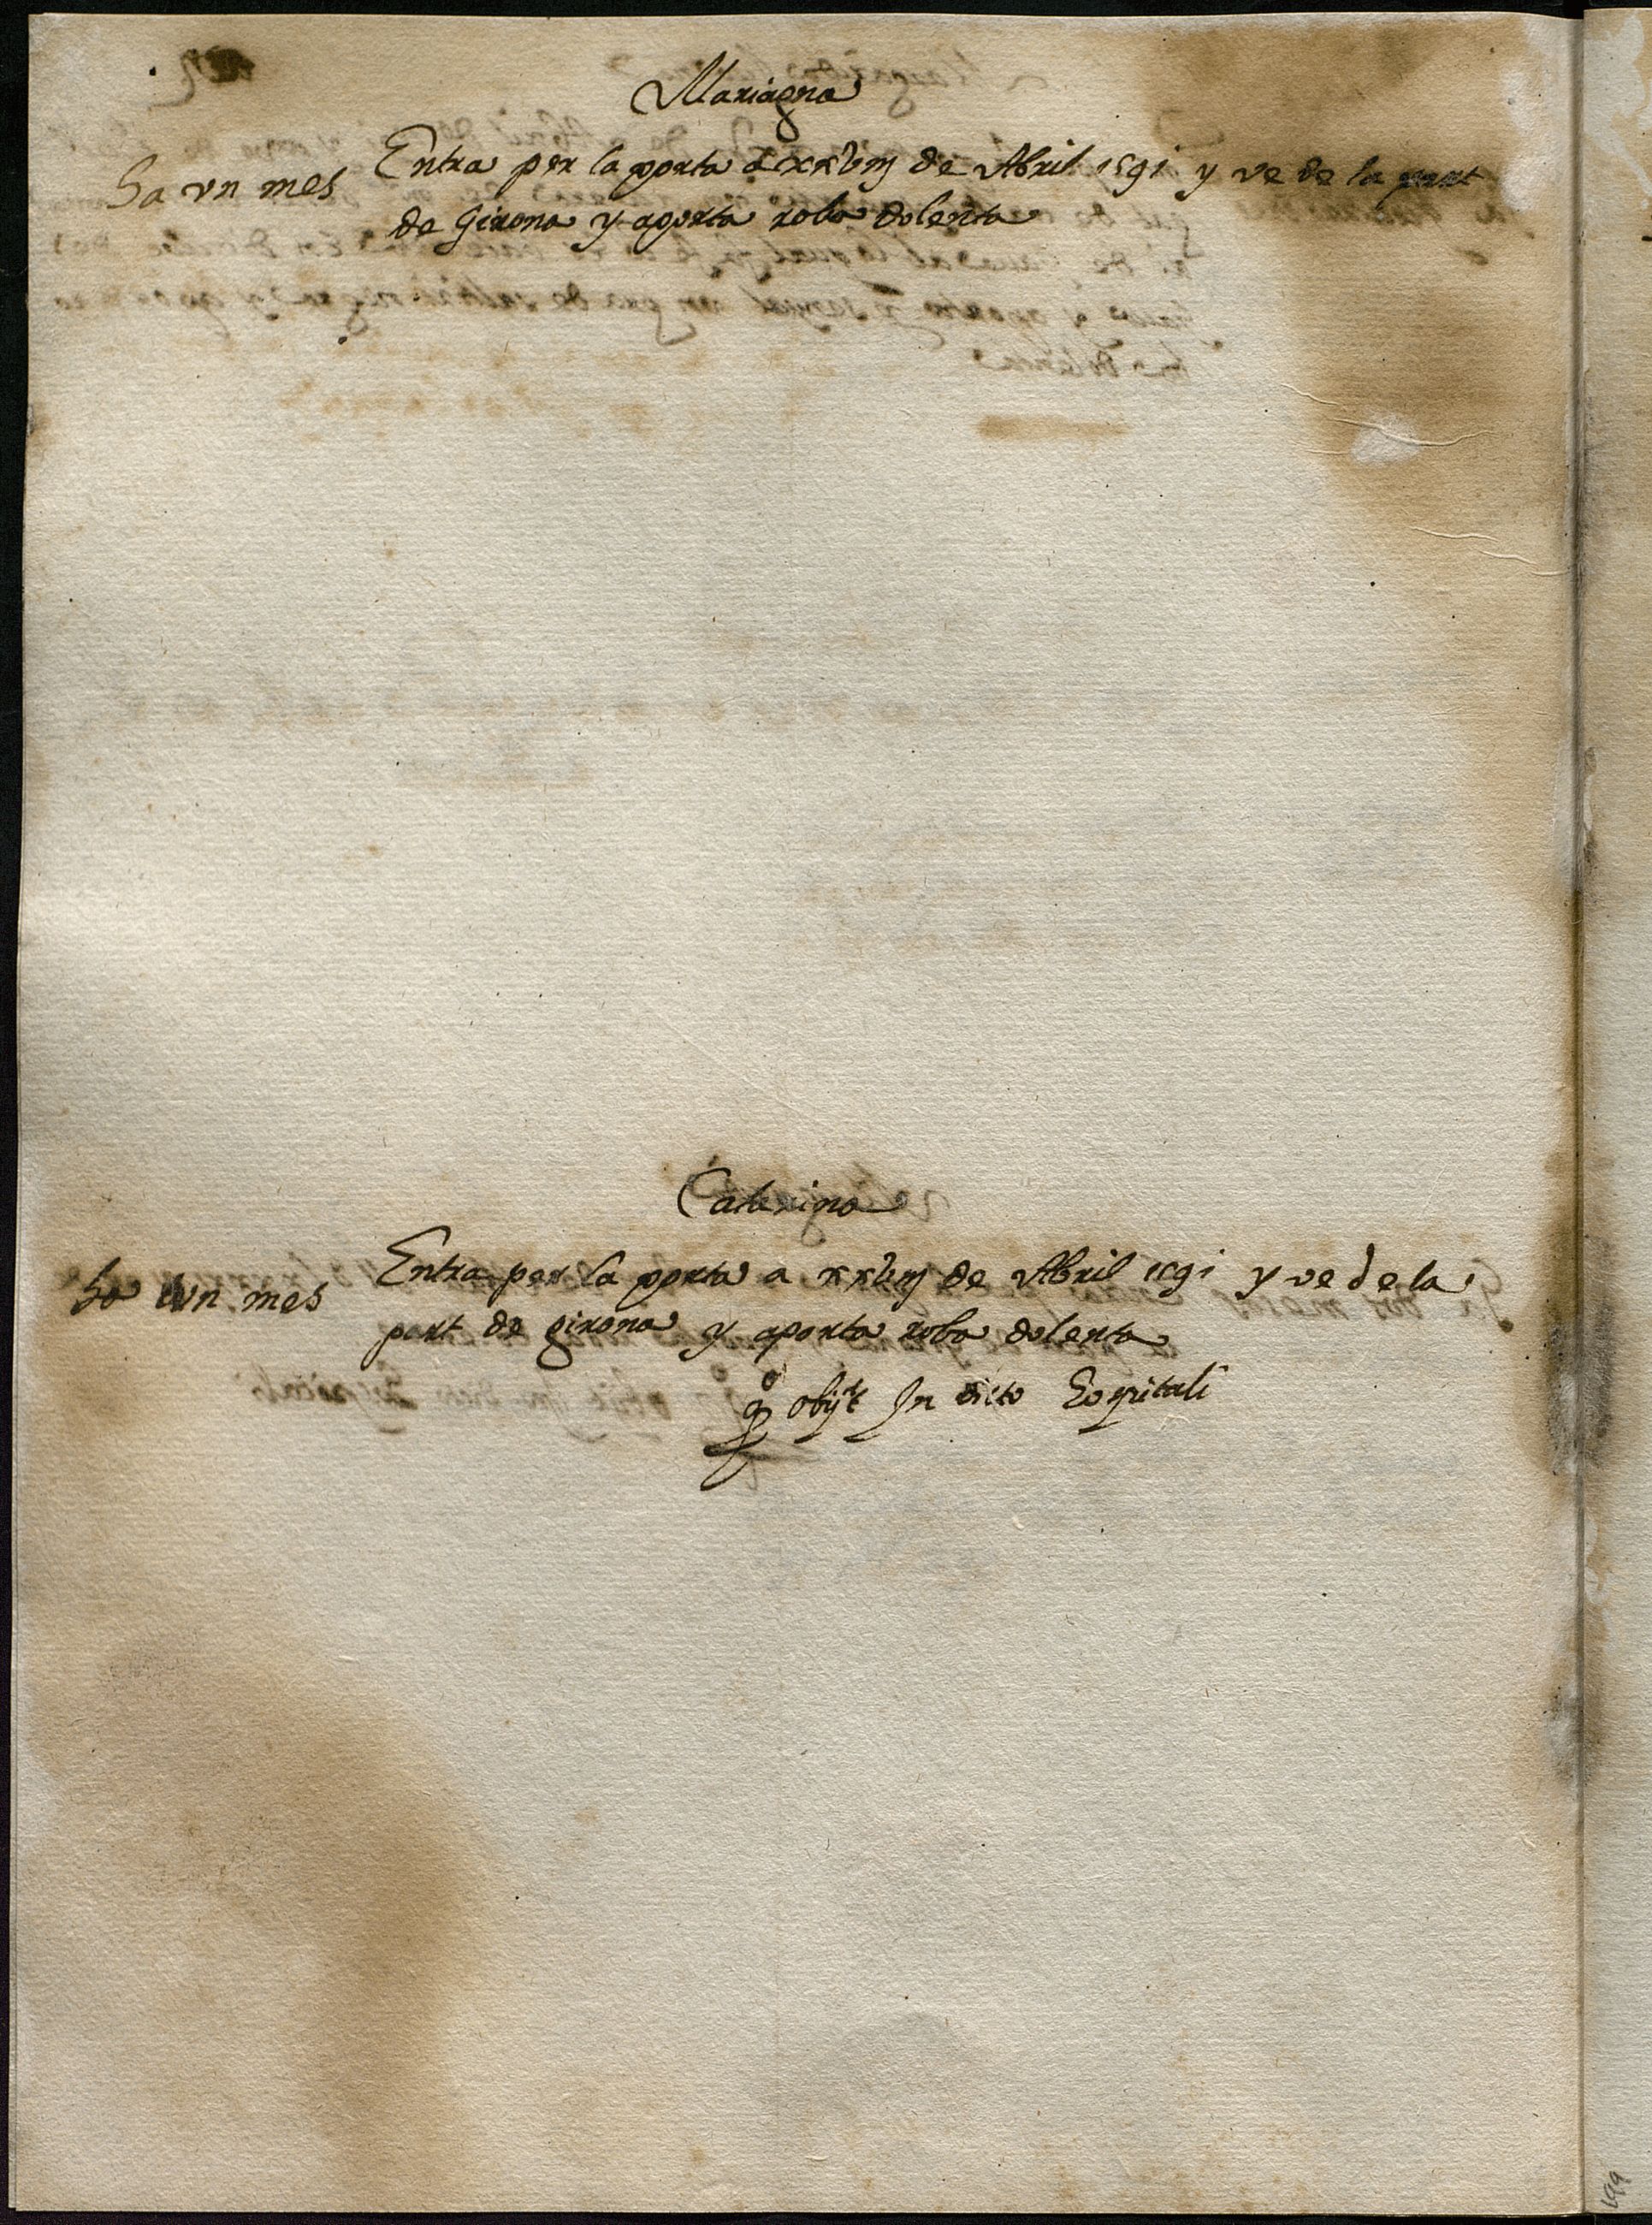 Mariagna
ha vn mes
Entra per la porta a xxviij de Abril 1591 y ve de la part
de Girona y aporta roba dolenta
Caterina
ha vn mes
Entra per la porta a xxviij de Abril 1591 y ve de la
part de girona y aporta roba dolenta
obijt In dicto Hospitali